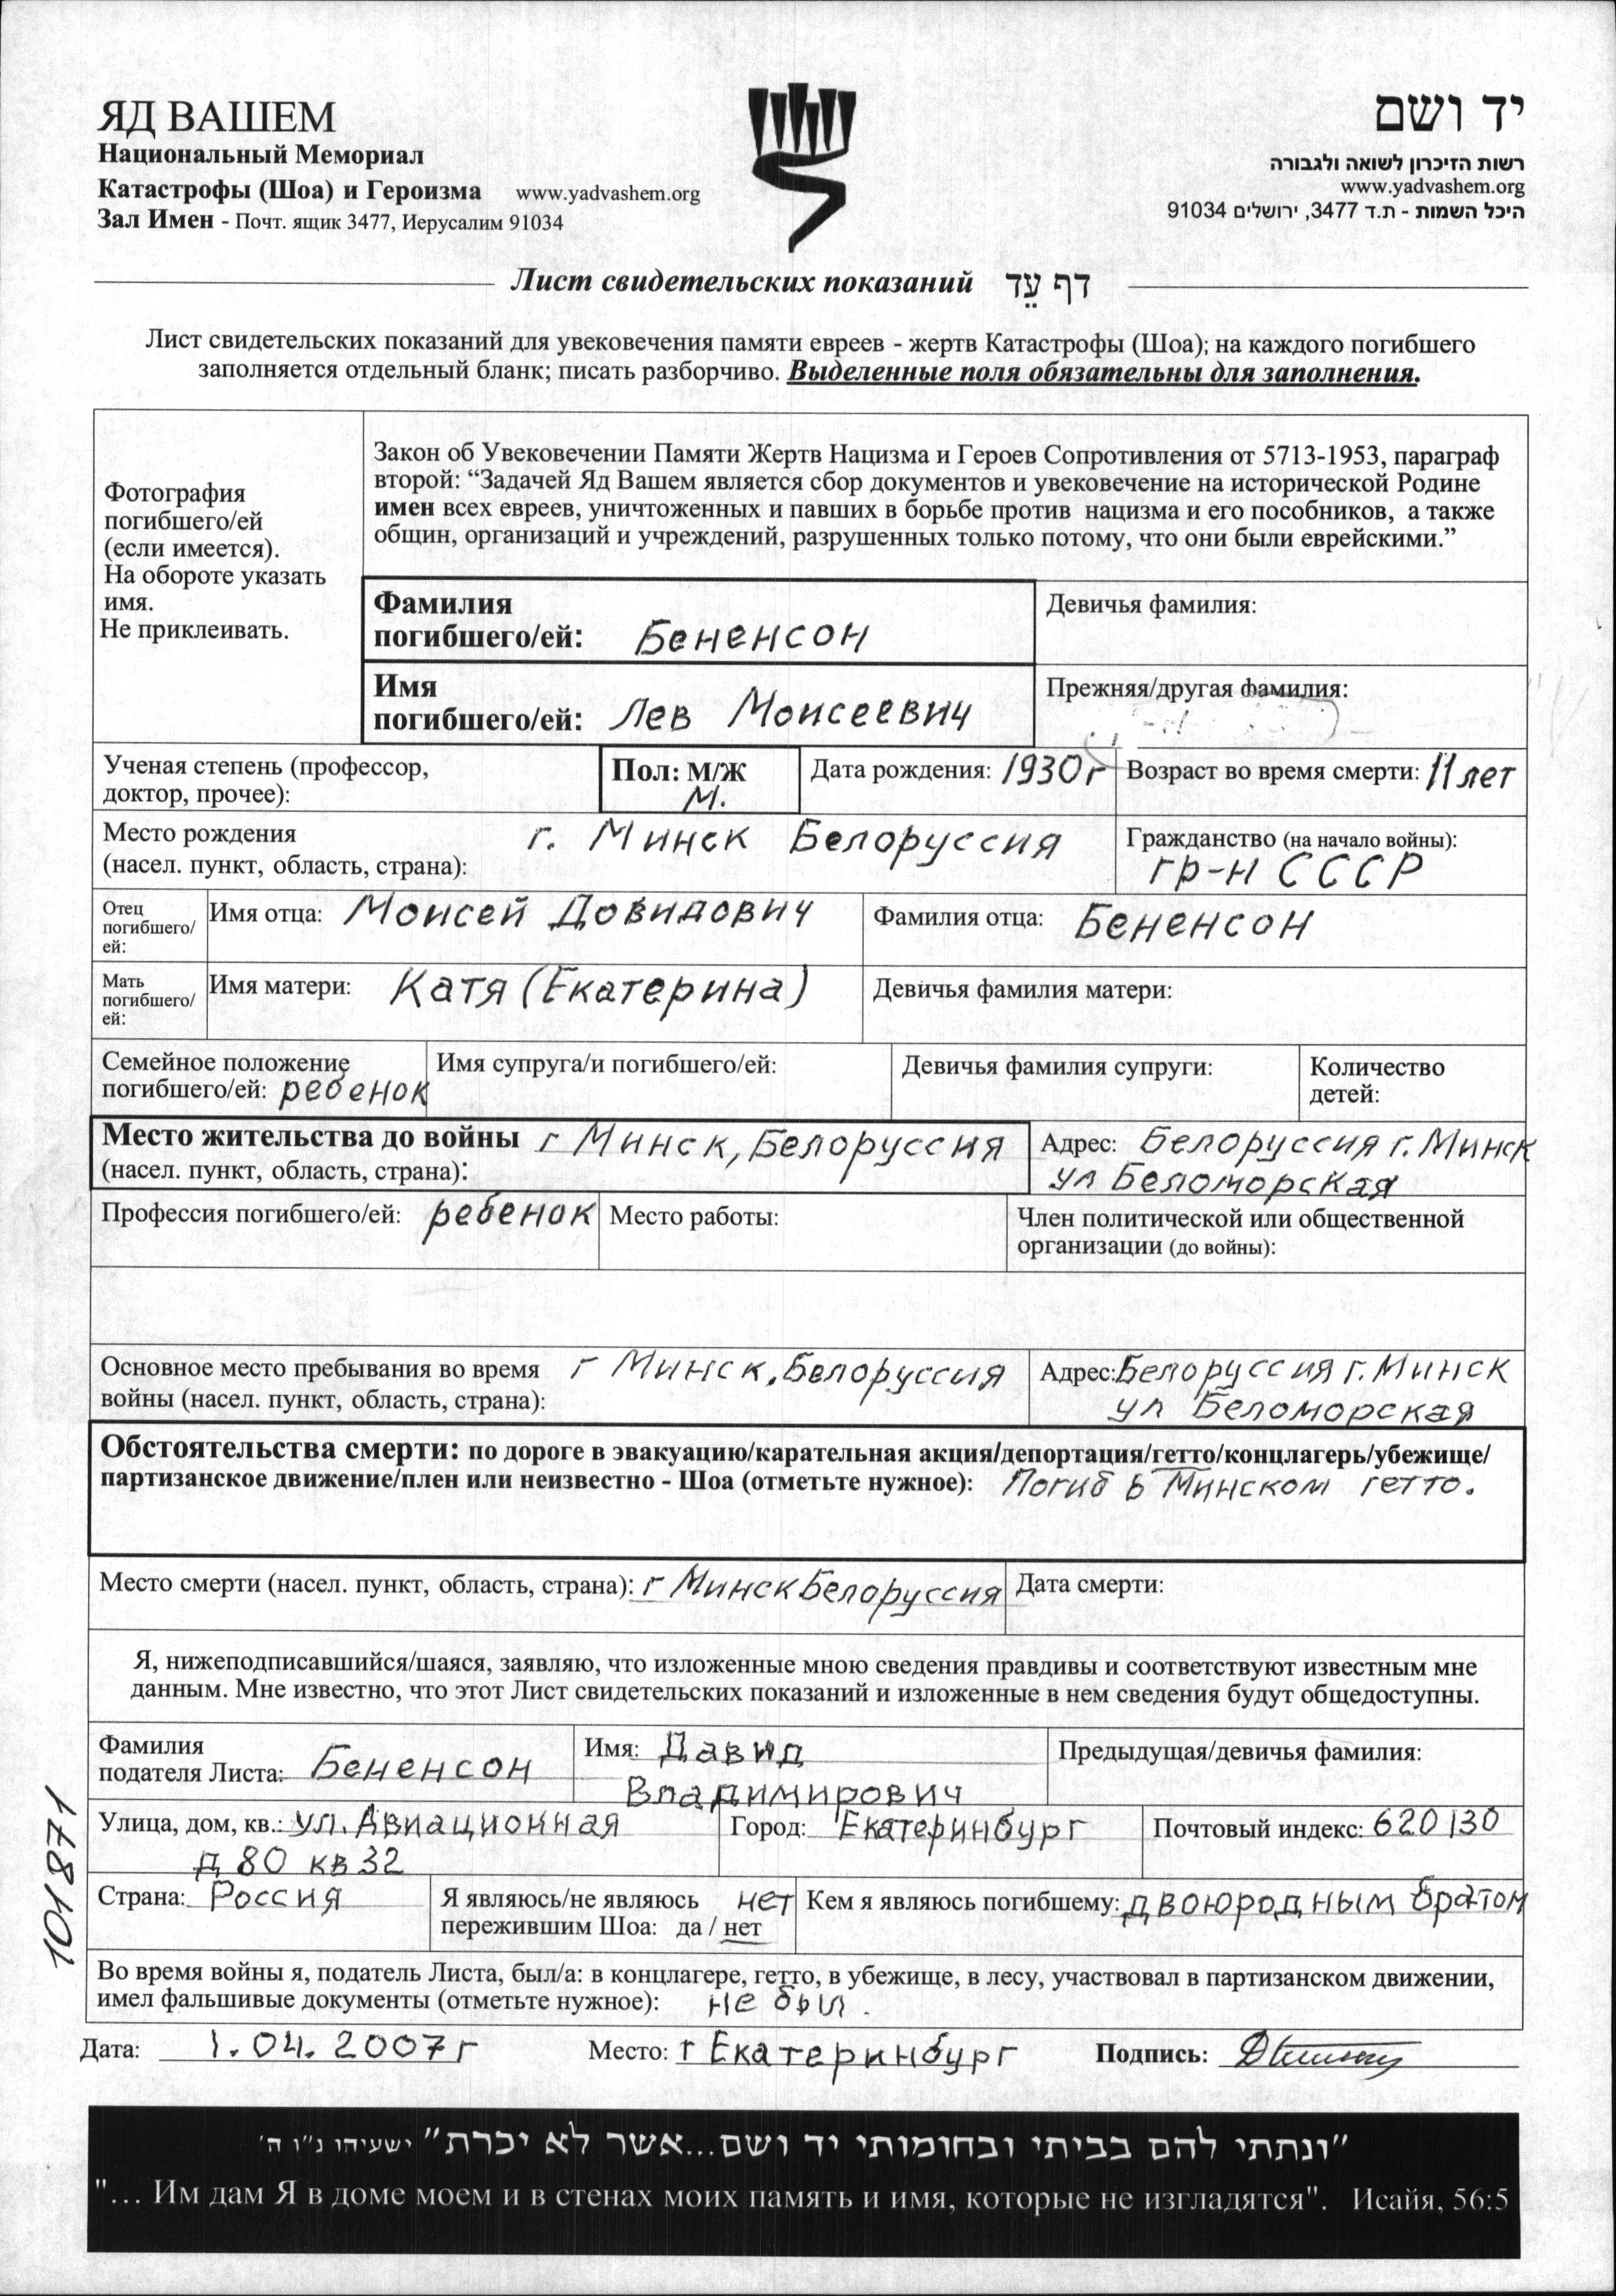 ЯД ВАШЕМ
Национальный Мемориал
Катастрофы (Шоа) и Героизма www.yadvashem.org
Зал Имен - Почт. ящик 3477, Иерусалим 91034
יד ושם
רשות הזיכרון לשואה ולגבורה
www.yadvashem.org
היכל השמות - ת.ד 3477, ירושלים 91034
Лист свидетельских показаний דף עֵד
Лист свидетельских показаний для увековечения памяти евреев - жертв Катастрофы (Шоа); на каждого погибшего
заполняется отдельный бланк; писать разборчиво. Выделенные поля обязательны для заполнения.
Фотография
погибшего/ей
(если имеется).
На обороте указать
имя.
Не приклеивать.
Закон об Увековечении Памяти Жертв Нацизма и Героев Сопротивления от 5713-1953, параграф
второй: “Задачей Яд Вашем является сбор документов и увековечение на исторической Родине
имен всех евреев, уничтоженных и павших в борьбе против нацизма и его пособников, а также
общин, организаций и учреждений, разрушенных только потому, что они были еврейскими.”
Фамилия
погибшего/ей: Бененсон
Девичья фамилия:
Имя
погибшего/ей: Лев Моисеевич
Прежняя/другая фамилия:
Ученая степень (профессор,
доктор, прочее):
Пол: М/Ж
М.
Дата рождения: 1930г
Возраст во время смерти: 11 лет
Место рождения г. Минск Белоруссия
(насел. пункт, область, страна):
Гражданство (на начало войны):
гр-н СССР
Отец
погибшего/
ей:
Имя отца: Моисей Довидович
Фамилия отца: Бененсон
Мать
погибшего/
ей:
Имя матери: Катя (Екатерина)
Девичья фамилия матери:
Семейное положение
погибшего/ей: ребенок
Имя супруга/и погибшего/ей:
Девичья фамилия супруги:
Количество
детей:
Место жительства до войны г Минск, Белоруссия
(насел. пункт, область, страна):
Адрес: Белоруссия г. Минск
ул Беломорская
Профессия погибшего/ей: ребенок
Место работы:
Член политической или общественной
организации (до войны):
Основное место пребывания во время г Минск, Белоруссия
войны (насел. пункт, область, страна):
Адрес: Белоруссия г. Минск
ул Беломорская
Обстоятельства смерти: по дороге в эвакуацию/карательная акция/депортация/гетто/концлагерь/убежище/
партизанское движение/плен или неизвестно - Шоа (отметьте нужное): Погиб в Минском гетто.
Место смерти (насел. пункт, область, страна): г Минск Белоруссия
Дата смерти:
Я, нижеподписавшийся/шаяся, заявляю, что изложенные мною сведения правдивы и соответствуют известным мне
данным. Мне известно, что этот Лист свидетельских показаний и изложенные в нем сведения будут общедоступны.
Фамилия
подателя Листа: Бененсон
Имя: Давид
Владимирович
Предыдущая/девичья фамилия:
Улица, дом, кв.: ул. Авиационная
д 80 кв 32
Город: Екатеринбург
Почтовый индекс: 620130
Страна: Россия
Я являюсь/не являюсь нет
пережившим Шоа: да / нет
Кем я являюсь погибшему: двоюродным братом
Во время войны я, податель Листа, был/а: в концлагере, гетто, в убежище, в лесу, участвовал в партизанском движении,
имел фальшивые документы (отметьте нужное): не был.
Дата: 1.04.2007г Место: г Екатеринбург Подпись:
101871
"ונתתי להם בביתי ובחומותי יד ושם...אשר לא יכרת" ישעיהו נ"ו ה'
"... Им дам Я в доме моем и в стенах моих память и имя, которые не изгладятся". Исайя, 56:5